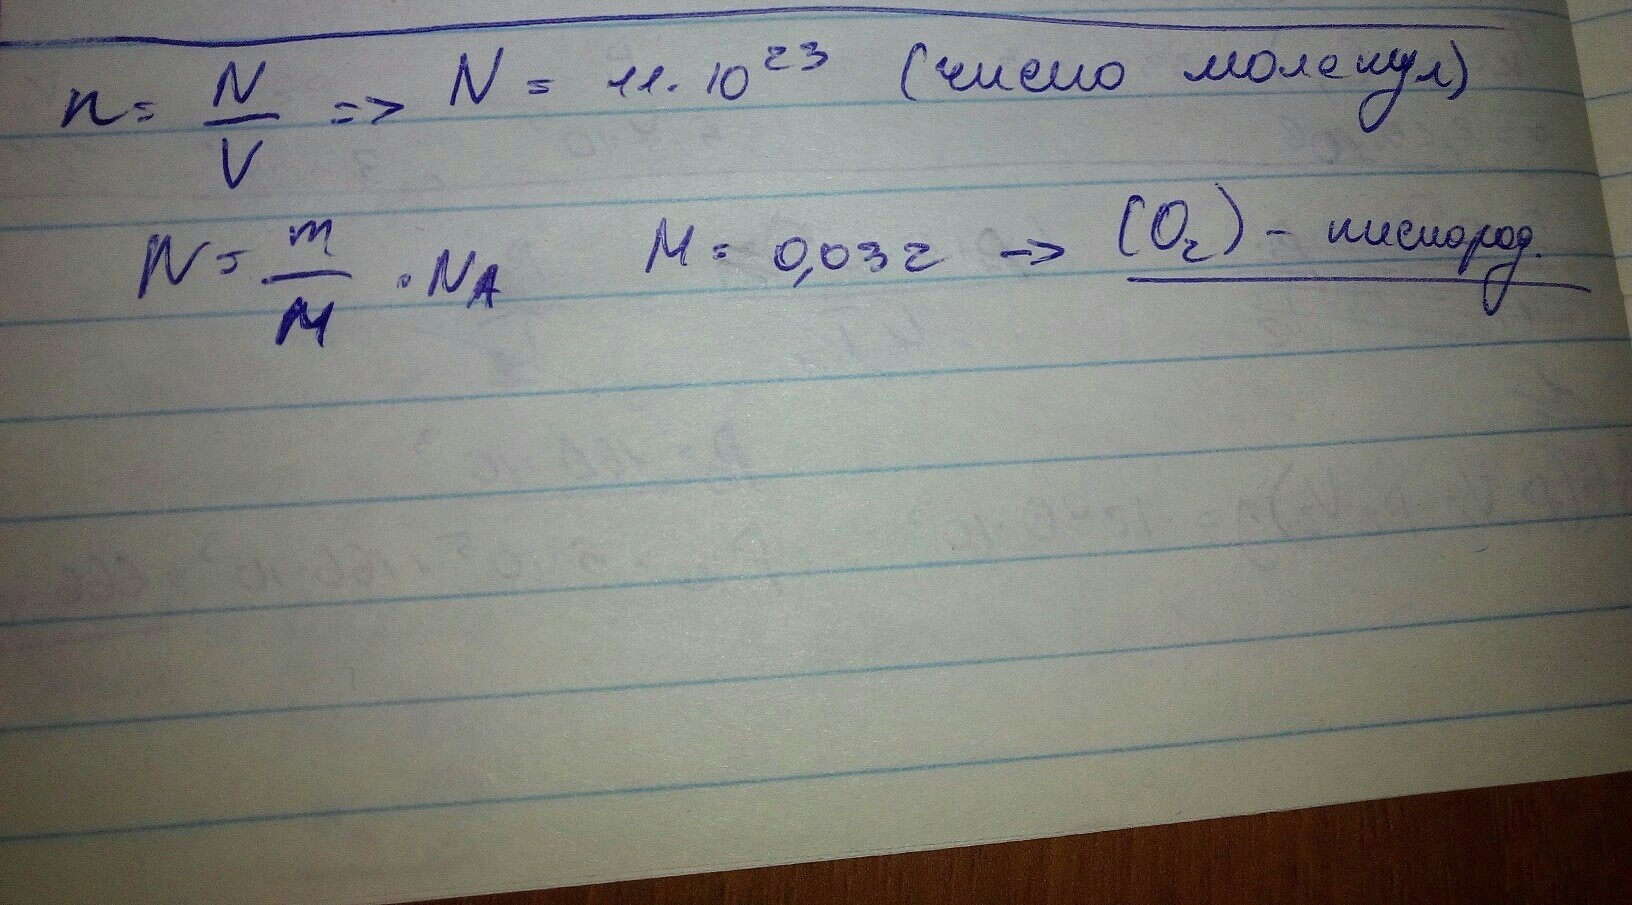 n = N/V => N = 11·10²³ (число молекул)
N = m/M · N_A M = 0,032 -> (O₂) - кислород.